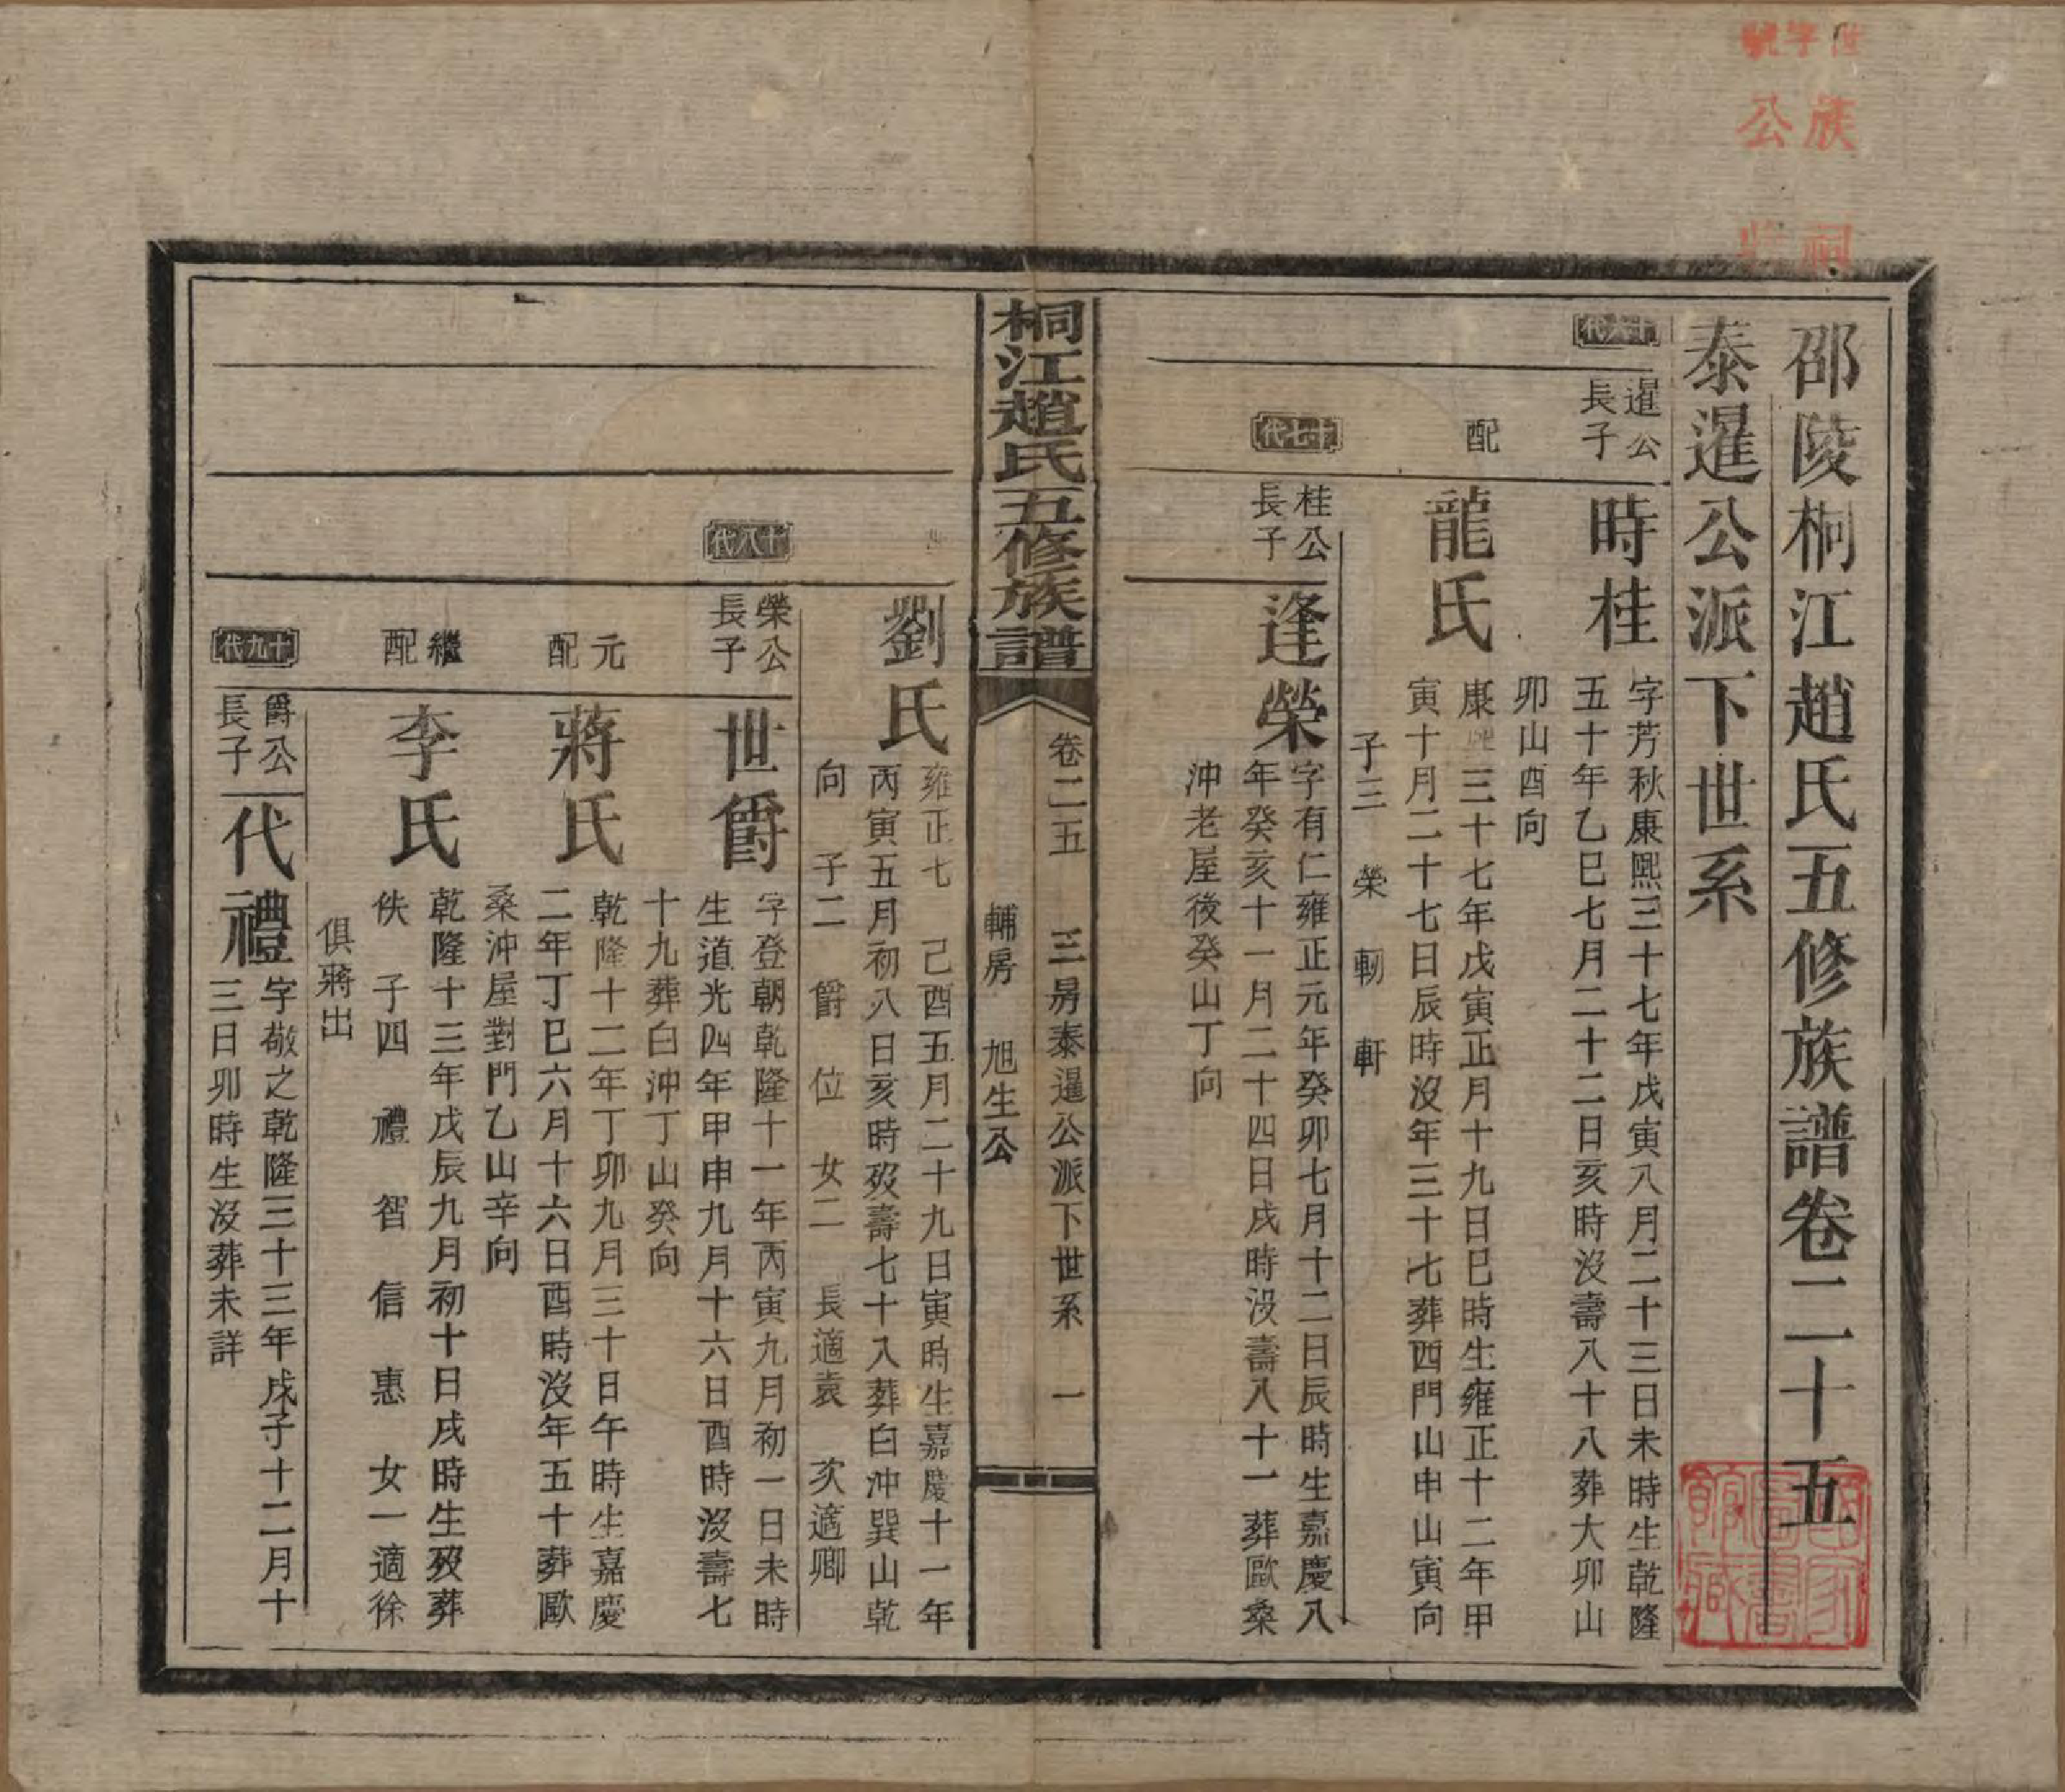 邵陵桐江趙氏五修族譜卷二十五
泰暹公派下世系
十六代
暹公
長子
時桂
字芳秋康熙三十七年戊寅八月二十三日未時生乾隆
五十年乙巳七月二十二日亥時沒壽八十八葬大卯山
卯山酉向
配
龍氏
康熙三十七年戊寅正月十九日巳時生雍正十二年甲
寅十月二十七日辰時沒年三十七葬西門山申山寅向
子三 榮 軔 軒
十七代
桂公
長子
逢榮
字有仁雍正元年癸卯七月十二日辰時生嘉慶八
年癸亥十一月二十四日戌時沒壽八十一葬歐桑
沖老屋後癸山丁向
桐江趙氏五修族譜
卷二五 三房泰暹公派下世系 一
輔房 旭生公
劉氏
雍正七 己酉五月二十九日寅時生嘉慶十一年
丙寅五月初八日亥時歿壽七十八葬白沖巽山乾
向 子二 爵 位 女二 長適袁 次適卿
十八代
榮公
長子
世爵
字登朝乾隆十一年丙寅九月初一日未時
生道光四年甲申九月十六日酉時沒壽七
十九葬白沖丁山癸向
元
配
蔣氏
乾隆十二年丁卯九月三十日午時生嘉慶
二年丁巳六月十六日酉時沒年五十葬歐
桑沖屋對門乙山辛向
繼
配
李氏
乾隆十三年戊辰九月初十日戌時生歿葬
佚 子四 禮 智 信 惠 女一適徐
俱蔣出
十九代
爵公
長子
代禮
字敬之乾隆三十三年戊子十二月十
三日卯時生沒葬未詳
族祠
公